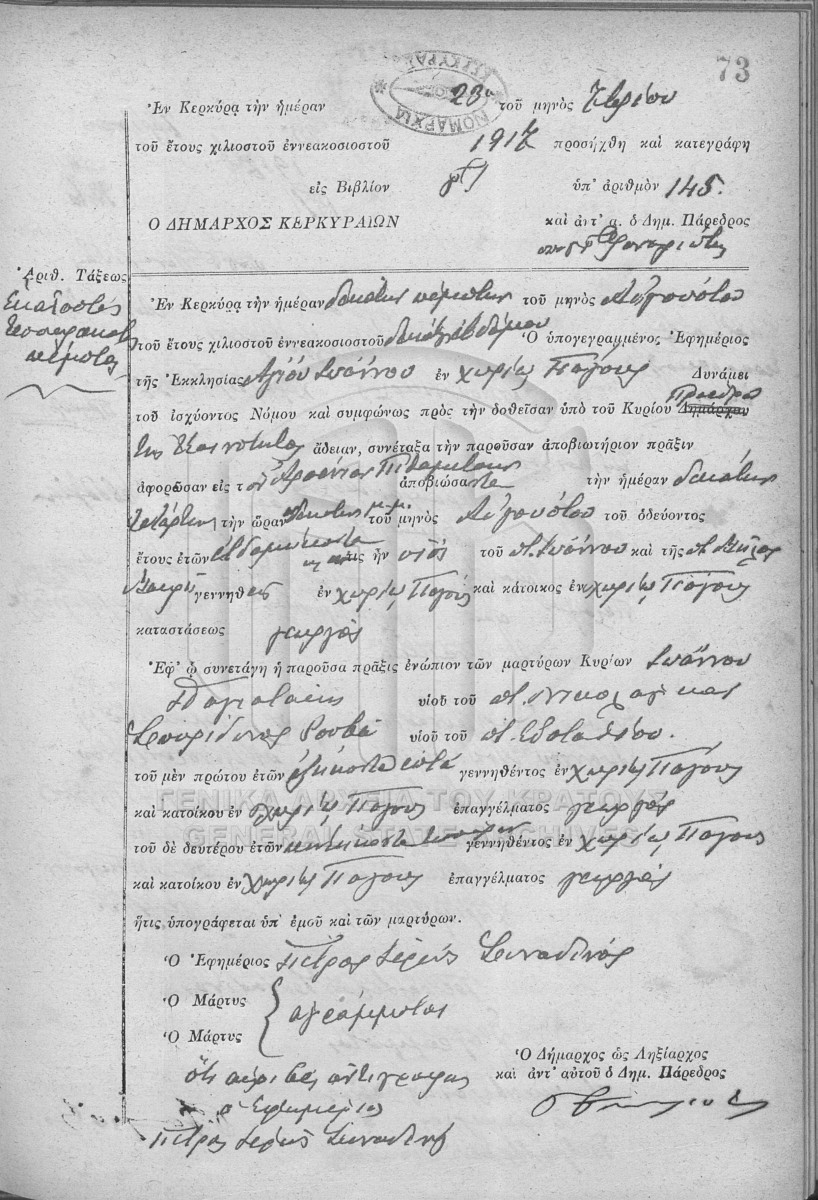 73
ΝΟΜΑΡΧΙΑ ΚΕΡΚΥΡΑΣ
Ἐν Κερκύρᾳ τὴν ἡμέραν 23 τοῦ μηνὸς 7βρίου
τοῦ ἔτους χιλιοστοῦ ἐννεακοσιοστοῦ 1917 προσήχθη καὶ κατεγράφη
εἰς Βιβλίον ὑπ' ἀριθμὸν 145.
Ο ΔΗΜΑΡΧΟΣ ΚΕΡΚΥΡΑΙΩΝ καὶ ἀντ' α. ὁ Δημ. Πάρεδρος
Ἀριθ. Τάξεως
Ἑκατοστὸς
τεσσαρακοστ
πέμπτος
Ἐν Κερκύρᾳ τὴν ἡμέραν δεκάτην πέμπτην τοῦ μηνὸς Αὐγούστου
τοῦ ἔτους χιλιοστοῦ ἐννεακοσιοστοῦ δεκάτου ἑβδόμου Ὁ ὑπογεγραμμένος Ἐφημέριος
τῆς Ἐκκλησίας Ἁγίου Ἰωάννου ἐν χωρίῳ Πάγους Δυνάμει
τοῦ ἰσχύοντος Νόμου καὶ συμφώνως πρὸς τὴν δοθεῖσαν ὑπὸ τοῦ Κυρίου Δημάρχου Προέδρου
τῆς Κοινότητος ἄδειαν, συνέταξα τὴν παροῦσαν ἀποβιωτήριον πρᾶξιν
ἀφορῶσαν εἰς τὸν ἀποβιώσαντα τὴν ἡμέραν δεκάτην
τετάρτην τὴν ὥραν δεκάτην μ.μ. τοῦ μηνὸς Αὐγούστου τοῦ ὁδεύοντος
ἔτους ἐτῶν ἑβδομήκοντα ἦν υἱὸς τοῦ π. Ἰωάννου καὶ τῆς
γεννηθεὶς ἐν χωρίῳ Πάγους καὶ κάτοικος ἐν χωρίῳ Πάγους
καταστάσεως γεωργὸς
Ἐφ' ᾧ συνετάγη ἡ παροῦσα πρᾶξις ἐνώπιον τῶν μαρτύρων Κυρίων Ἰωάννου
υἱοῦ τοῦ π. Νικολάου καὶ
Σπυρίδωνος Ρουβᾶ υἱοῦ τοῦ π. Εὐσταθίου.
τοῦ μὲν πρώτου ἐτῶν ἑξήκοντα ἑπτά γεννηθέντος ἐν χωρίῳ Πάγους
καὶ κατοίκου ἐν χωρίῳ Πάγους ἐπαγγέλματος γεωργὸς
τοῦ δὲ δευτέρου ἐτῶν πεντήκοντα τεσσάρων γεννηθέντος ἐν χωρίῳ Πάγους
καὶ κατοίκου ἐν χωρίῳ Πάγους ἐπαγγέλματος γεωργὸς
ἥτις ὑπογράφεται ὑπ' ἐμοῦ καὶ τῶν μαρτύρων.
Ὁ Ἐφημέριος Πέτρος Ἱερεὺς Συναδινός
Ὁ Μάρτυς
ἀγράμματοι
Ὁ Μάρτυς
Ὁ Δήμαρχος ὡς Ληξίαρχος
καὶ ἀντ' αὐτοῦ ὁ Δημ. Πάρεδρος
Ὅτι ἀκριβὲς ἀντίγραφον
ὁ Ἐφημέριος
Πέτρος Ἱερεὺς Συναδινός
ΓΕΝΙΚΑ ΑΡΧΕΙΑ ΤΟΥ ΚΡΑΤΟΥΣ
GENERAL STATE ARCHIVES